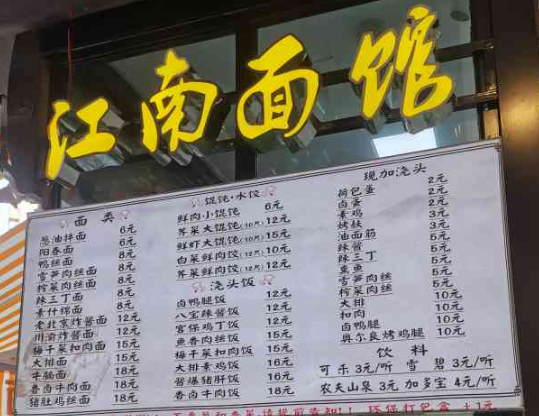 江南面馆
面 类
葱油拌面 6元
阳春面 6元
鸭丝面 8元
雪笋肉丝面 8元
榨菜肉丝面 8元
辣三丁面 8元
素什锦面 8元
老北京炸酱面 12元
川渝炸酱面 12元
梅干菜扣肉面 15元
大排面 15元
牛腩面 16元
香卤牛肉面 18元
猪肚鸡丝面 18元
馄饨·水饺
鲜肉小馄饨 6元
荠菜大馄饨(10只) 12元
鲜虾大馄饨(10只) 15元
白菜鲜肉饺(12只) 10元
荠菜鲜肉饺(12只) 12元
浇头饭
卤鸭腿饭 12元
八宝辣酱饭 12元
宫保鸡丁饭 12元
鱼香肉丝饭 15元
梅干菜扣肉饭 15元
大排素鸡饭 16元
酱爆猪肝饭 16元
香卤牛肉饭 18元
现加浇头
荷包蛋 2元
卤蛋 2元
素鸡 2元
烤麸 3元
油面筋 3元
辣酱 5元
辣三丁 5元
熏鱼 5元
雪笋肉丝 5元
榨菜肉丝 5元
大排 10元
扣肉 10元
卤鸭腿 10元
奥尔良烤鸡腿 10元
饮 料
可乐 3元/听 雪碧 3元/听
农夫山泉 3元 加多宝 4元/听